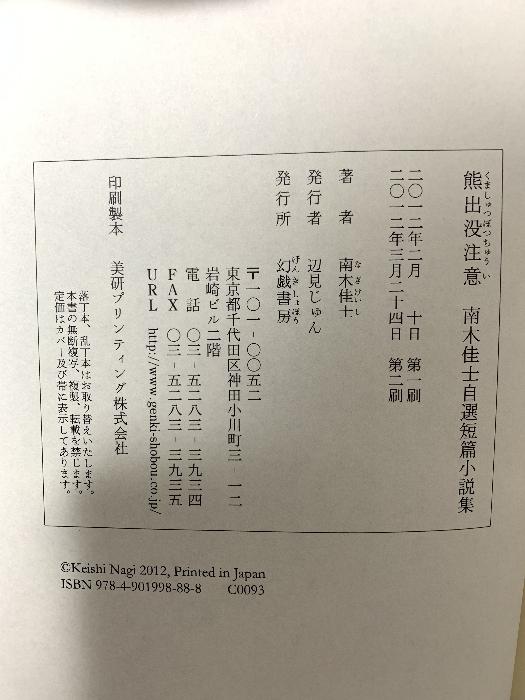 熊出没注意 南木佳士自選短篇小説集
くましゅつぼつちゅうい
二〇一二年二月 十日 第一刷
二〇一二年三月二十四日 第二刷
著者 南木佳士
なぎけいし
発行者 辺見じゅん
発行所 幻戯書房
げんきしょぼう
〒一〇一-〇〇五二
東京都千代田区神田小川町三-一二
岩崎ビル二階
電話 〇三-五二八三-三九三四
FAX 〇三-五二八三-三九三五
URL http://www.genki-shobou.co.jp/
印刷製本 美研プリンティング株式会社
落丁本、乱丁本はお取り替えいたします。
本書の無断複写、複製、転載を禁じます。
定価はカバー及び帯に表示してあります。
©Keishi Nagi 2012, Printed in Japan
ISBN 978-4-901998-88-8 C0093